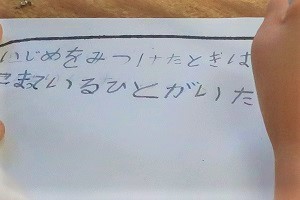 いじめをみつけたときは
こまているひとがいた